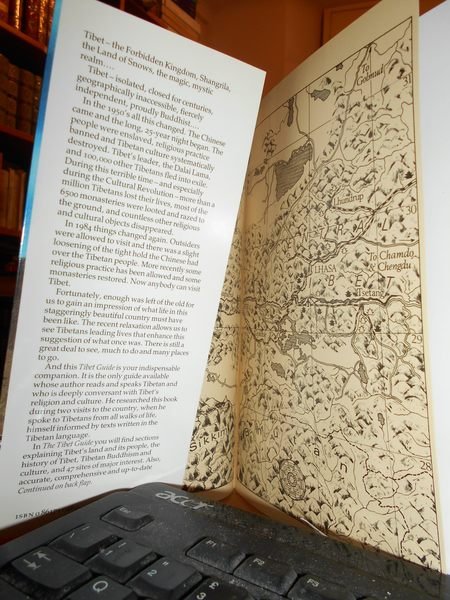 Tibet – the Forbidden Kingdom, Shangrila,
the Land of Snows, the magic, mystic
realm....
Tibet – isolated, closed for centuries,
geographically inaccessible, fiercely
independent, proudly Buddhist...
In the 1950's all this changed. The Chinese
came and the long, 25-year night began. The
people were enslaved, religious practice
banned and Tibetan culture systematically
destroyed. Tibet's leader, the Dalai Lama,
and 100,000 other Tibetans fled into exile.
During this terrible time – and especially
during the Cultural Revolution – more than a
million Tibetans lost their lives, most of the
6500 monasteries were looted and razed to
the ground, and countless other religious
and cultural objects disappeared.
In 1984 things changed again. Outsiders
were allowed to visit and there was a slight
loosening of the tight hold the Chinese had
over the Tibetan people. More recently some
religious practice has been allowed and some
monasteries restored. Now anybody can visit
Tibet.
Fortunately, enough was left of the old for
us to gain an impression of what life in this
staggeringly beautiful country must have
been like. The recent relaxation allows us to
see Tibetans leading lives that enhance this
suggestion of what once was. There is still a
great deal to see, much to do and many places
to go.
And this Tibet Guide is your indispensable
companion. It is the only guide available
whose author reads and speaks Tibetan and
who is deeply conversant with Tibet's
religion and culture. He researched this book
during two visits to the country, when he
spoke to Tibetans from all walks of life,
himself informed by texts written in the
Tibetan language.
In The Tibet Guide you will find sections
explaining Tibet's land and its people, the
history of Tibet, Tibetan Buddhism and
culture, and 47 sites of major interest. Also,
accurate, comprehensive and up-to-date
Continued on back flap.
ISBN 0 86
To
Golmud
31
Lhundrup
30
To Chamdo
& Chengdu
LHASA
B E T
Tsetang
29
28
SIKKIM
acer
Q
1
2
F1
F2
F3